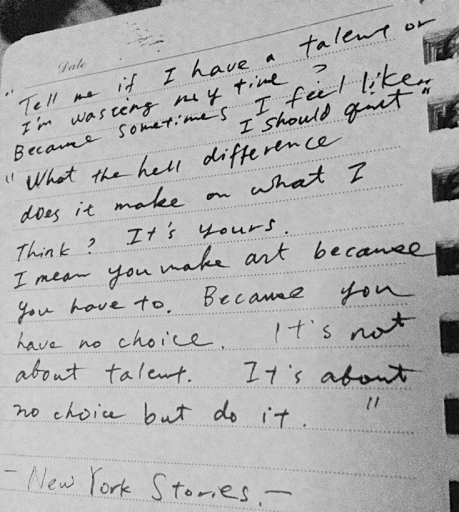 Date
"Tell me if I have a talent or
I'm wasting my time?
Because sometimes I feel like..
I should quit"
"What the hell difference
does it make on what I
Think? It's yours.
I mean you make art because
you have to. Because you
have no choice. It's not
about talent. It's about
no choice but do it. "
- New York Stories. -